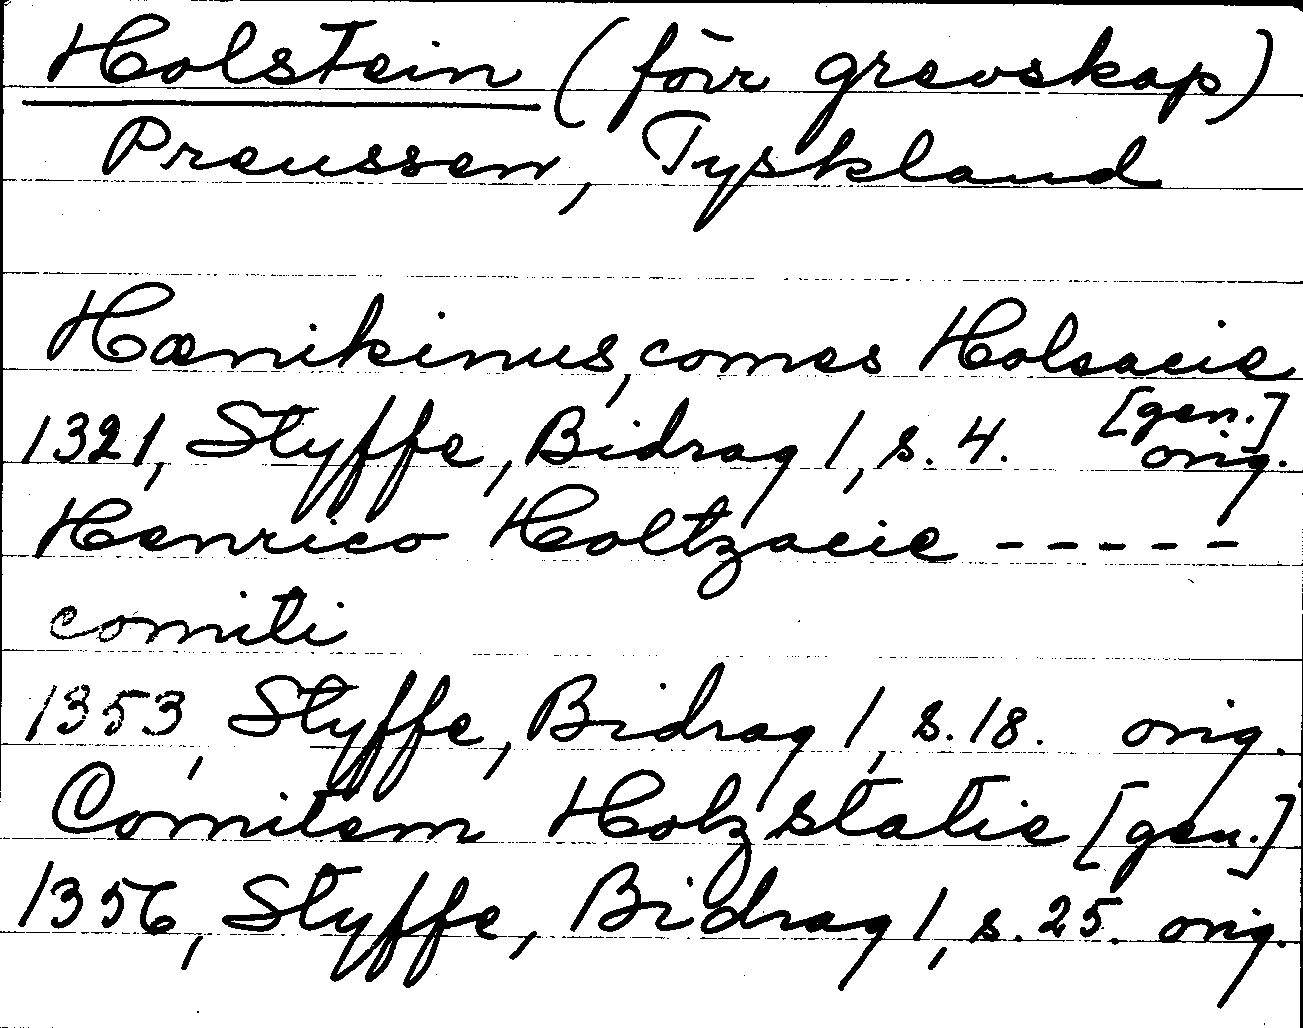 Holstein (förr grevskap)
Preussen, Tyskland
Hænikinus, comes Holsacie
[gen.]
1321, Styffe, Bidrag 1, s. 4. orig.
Henrico Holtzacie - - - - -
comiti
1353, Styffe, Bidrag 1, s. 18. orig.
Comitem Holzstatie [gen.]
1356, Styffe, Bidrag 1, s. 25. orig.